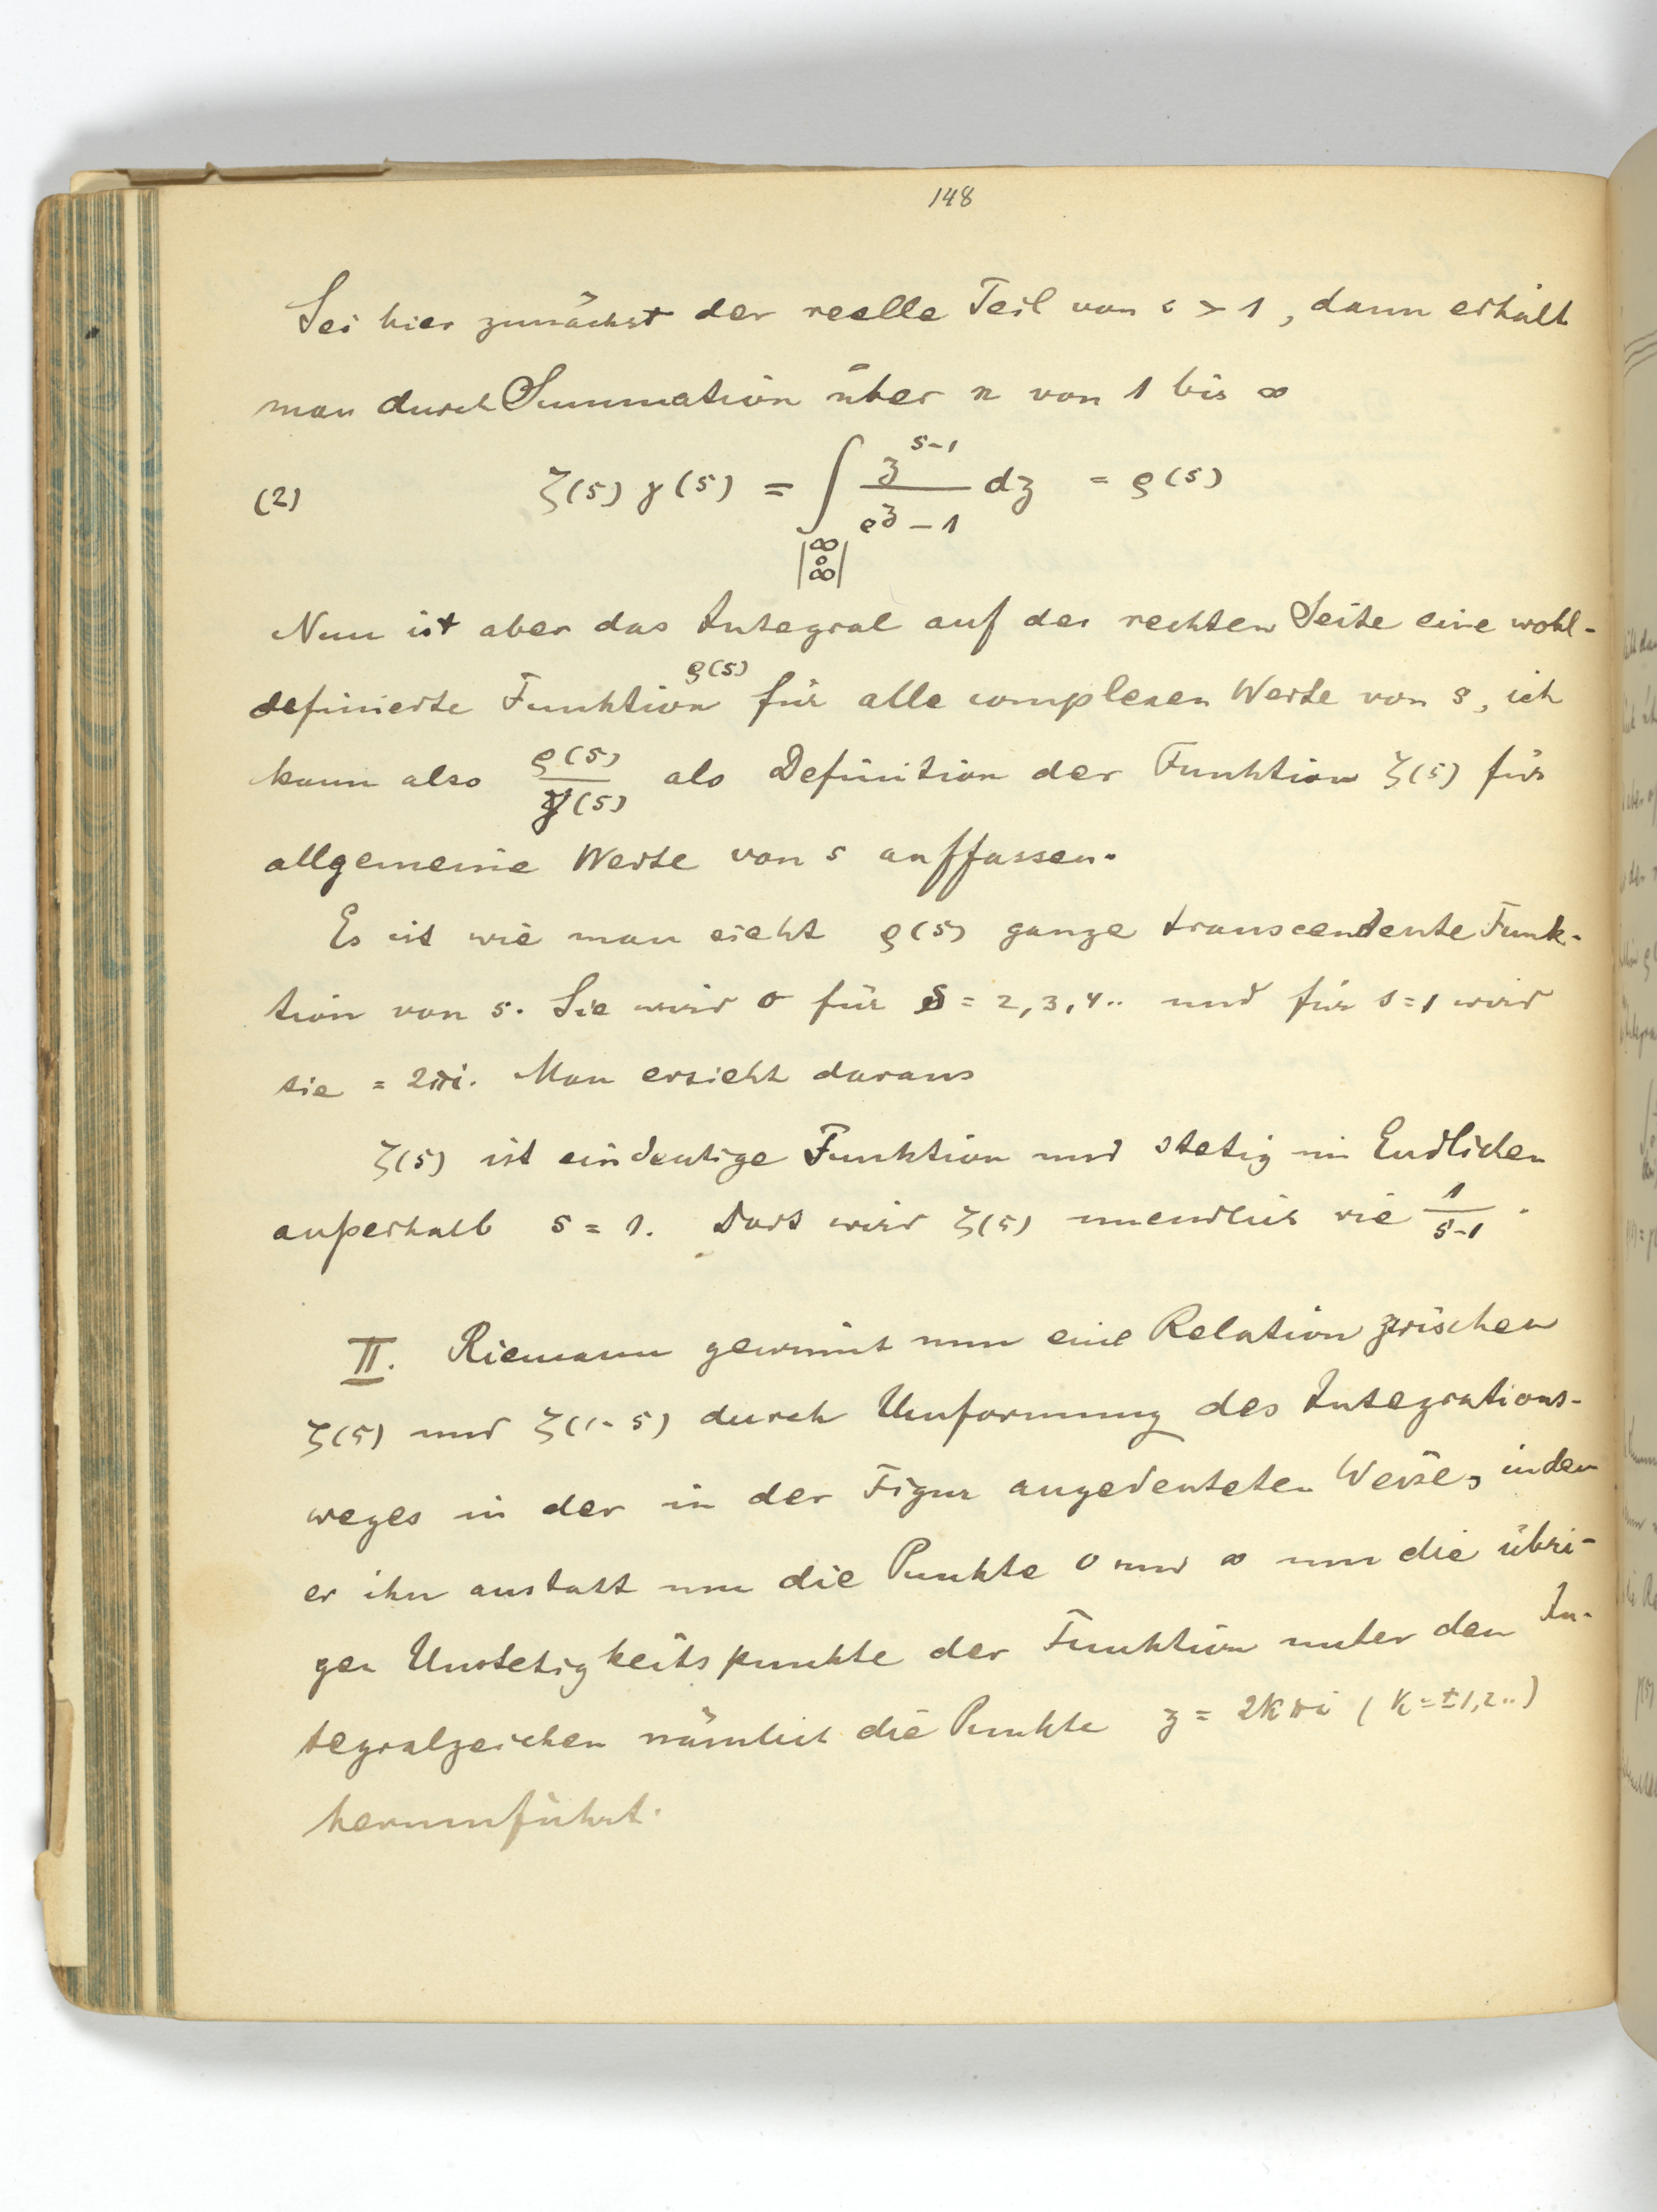 148
Sei hier zunächst der reelle Teil von s > 1, dann erhält
man durch Summation über n von 1 bis ∞
(2) ζ(s) γ(s) = ∫_{|∞ 0 ∞|} z^{s-1}/(e^z - 1) dz = ϱ(s)
Nun ist aber das Integral auf der rechten Seite eine wohl-
definierte Funktion ϱ(s) für alle complexen Werte von s, ich
kann also ϱ(s)/γ(s) als Definition der Funktion ζ(s) für
allgemeine Werte von s auffassen.
Es ist wie man sieht ϱ(s) ganze transcendente Funk-
tion von s. Sie wird 0 für s = 2, 3, 4.. und für s = 1 wird
sie = 2πi. Man ersieht daraus
ζ(s) ist eindeutige Funktion und stetig im Endlichen
außerhalb s = 1. Dort wird ζ(s) unendlich wie 1/(s-1).
II. Riemann gewinnt nun eine Relation zwischen
ζ(s) und ζ(1-s) durch Umformung des Integrations-
weges in der in der Figur angedeuteten Weise, indem
er ihn anstatt um die Punkte 0 und ∞ um die übri-
gen Unstetigkeitspunkte der Funktion unter dem In-
tegralzeichen nämlich die Punkte z = 2kπi (k = ±1, 2..)
herumführt.